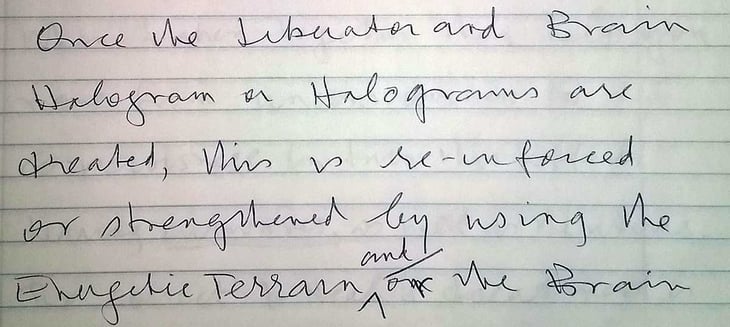 Once the Liberator and Brain
Halogram or Halograms are
created, this is re-inforced
or strengthened by using the
Energetic Terrain and the Brain